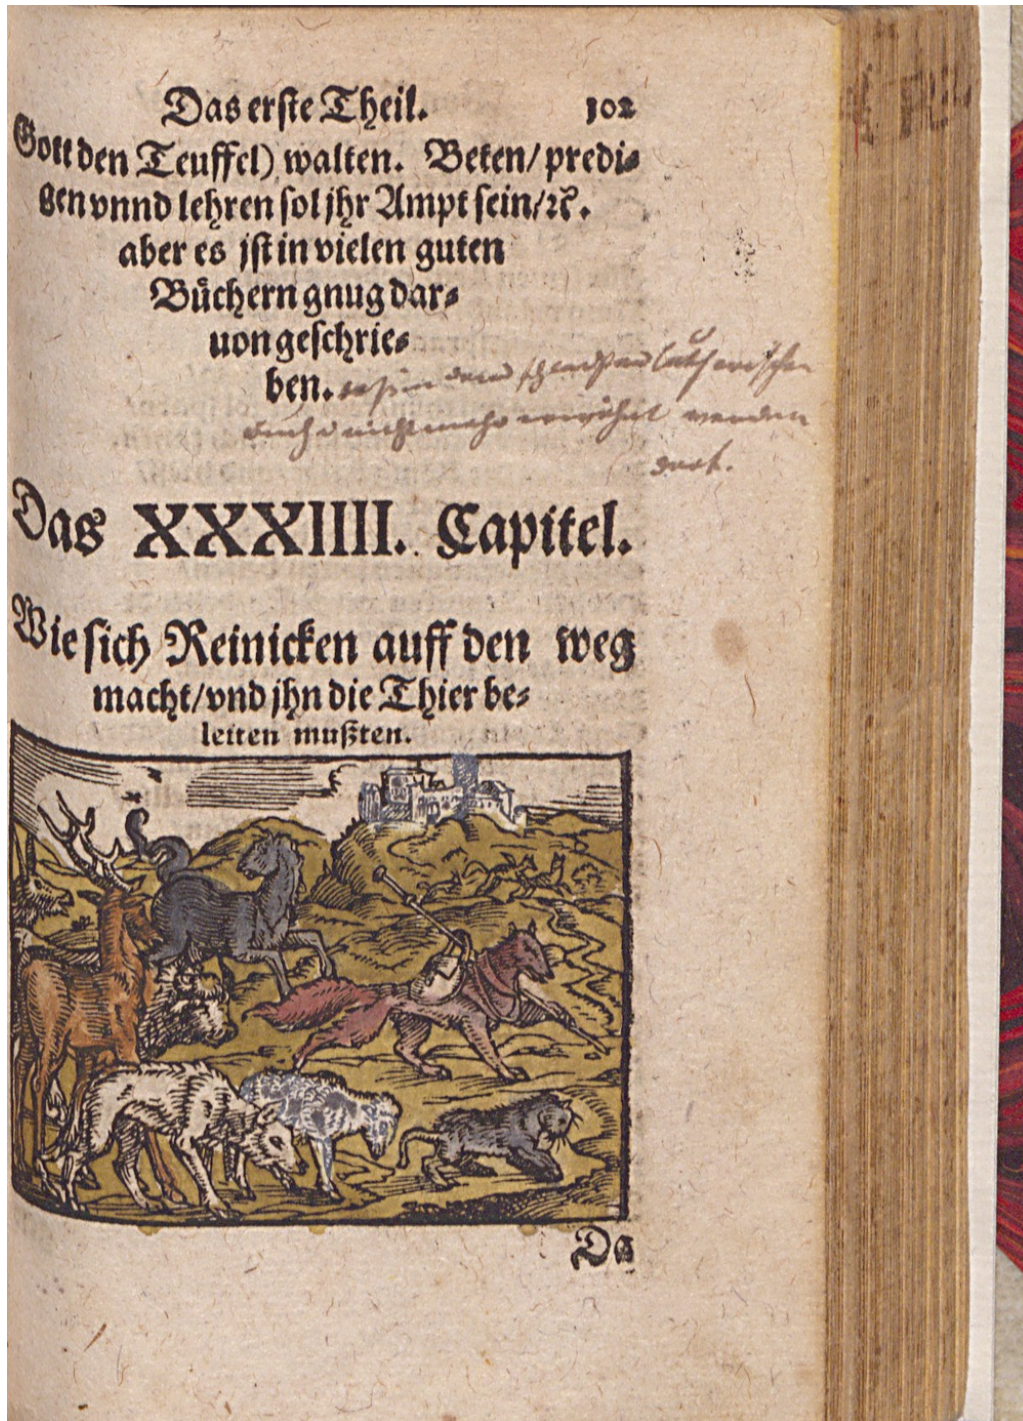 Das erste Theil. 102
Gott den Teuffel) walten. Beten/ predi⸗
gen vnnd lehren sol jhr Ampt sein/ ꝛc̃.
aber es jst in vielen guten
Büchern gnug dar⸗
uon geschrie⸗
ben.
nicht mehr erwöhnt werden
darf.
Das XXXIIII. Capitel.
Wie sich Reinicken auff den weg
macht/ vnd jhn die Thier be⸗
leiten mußten.
Da